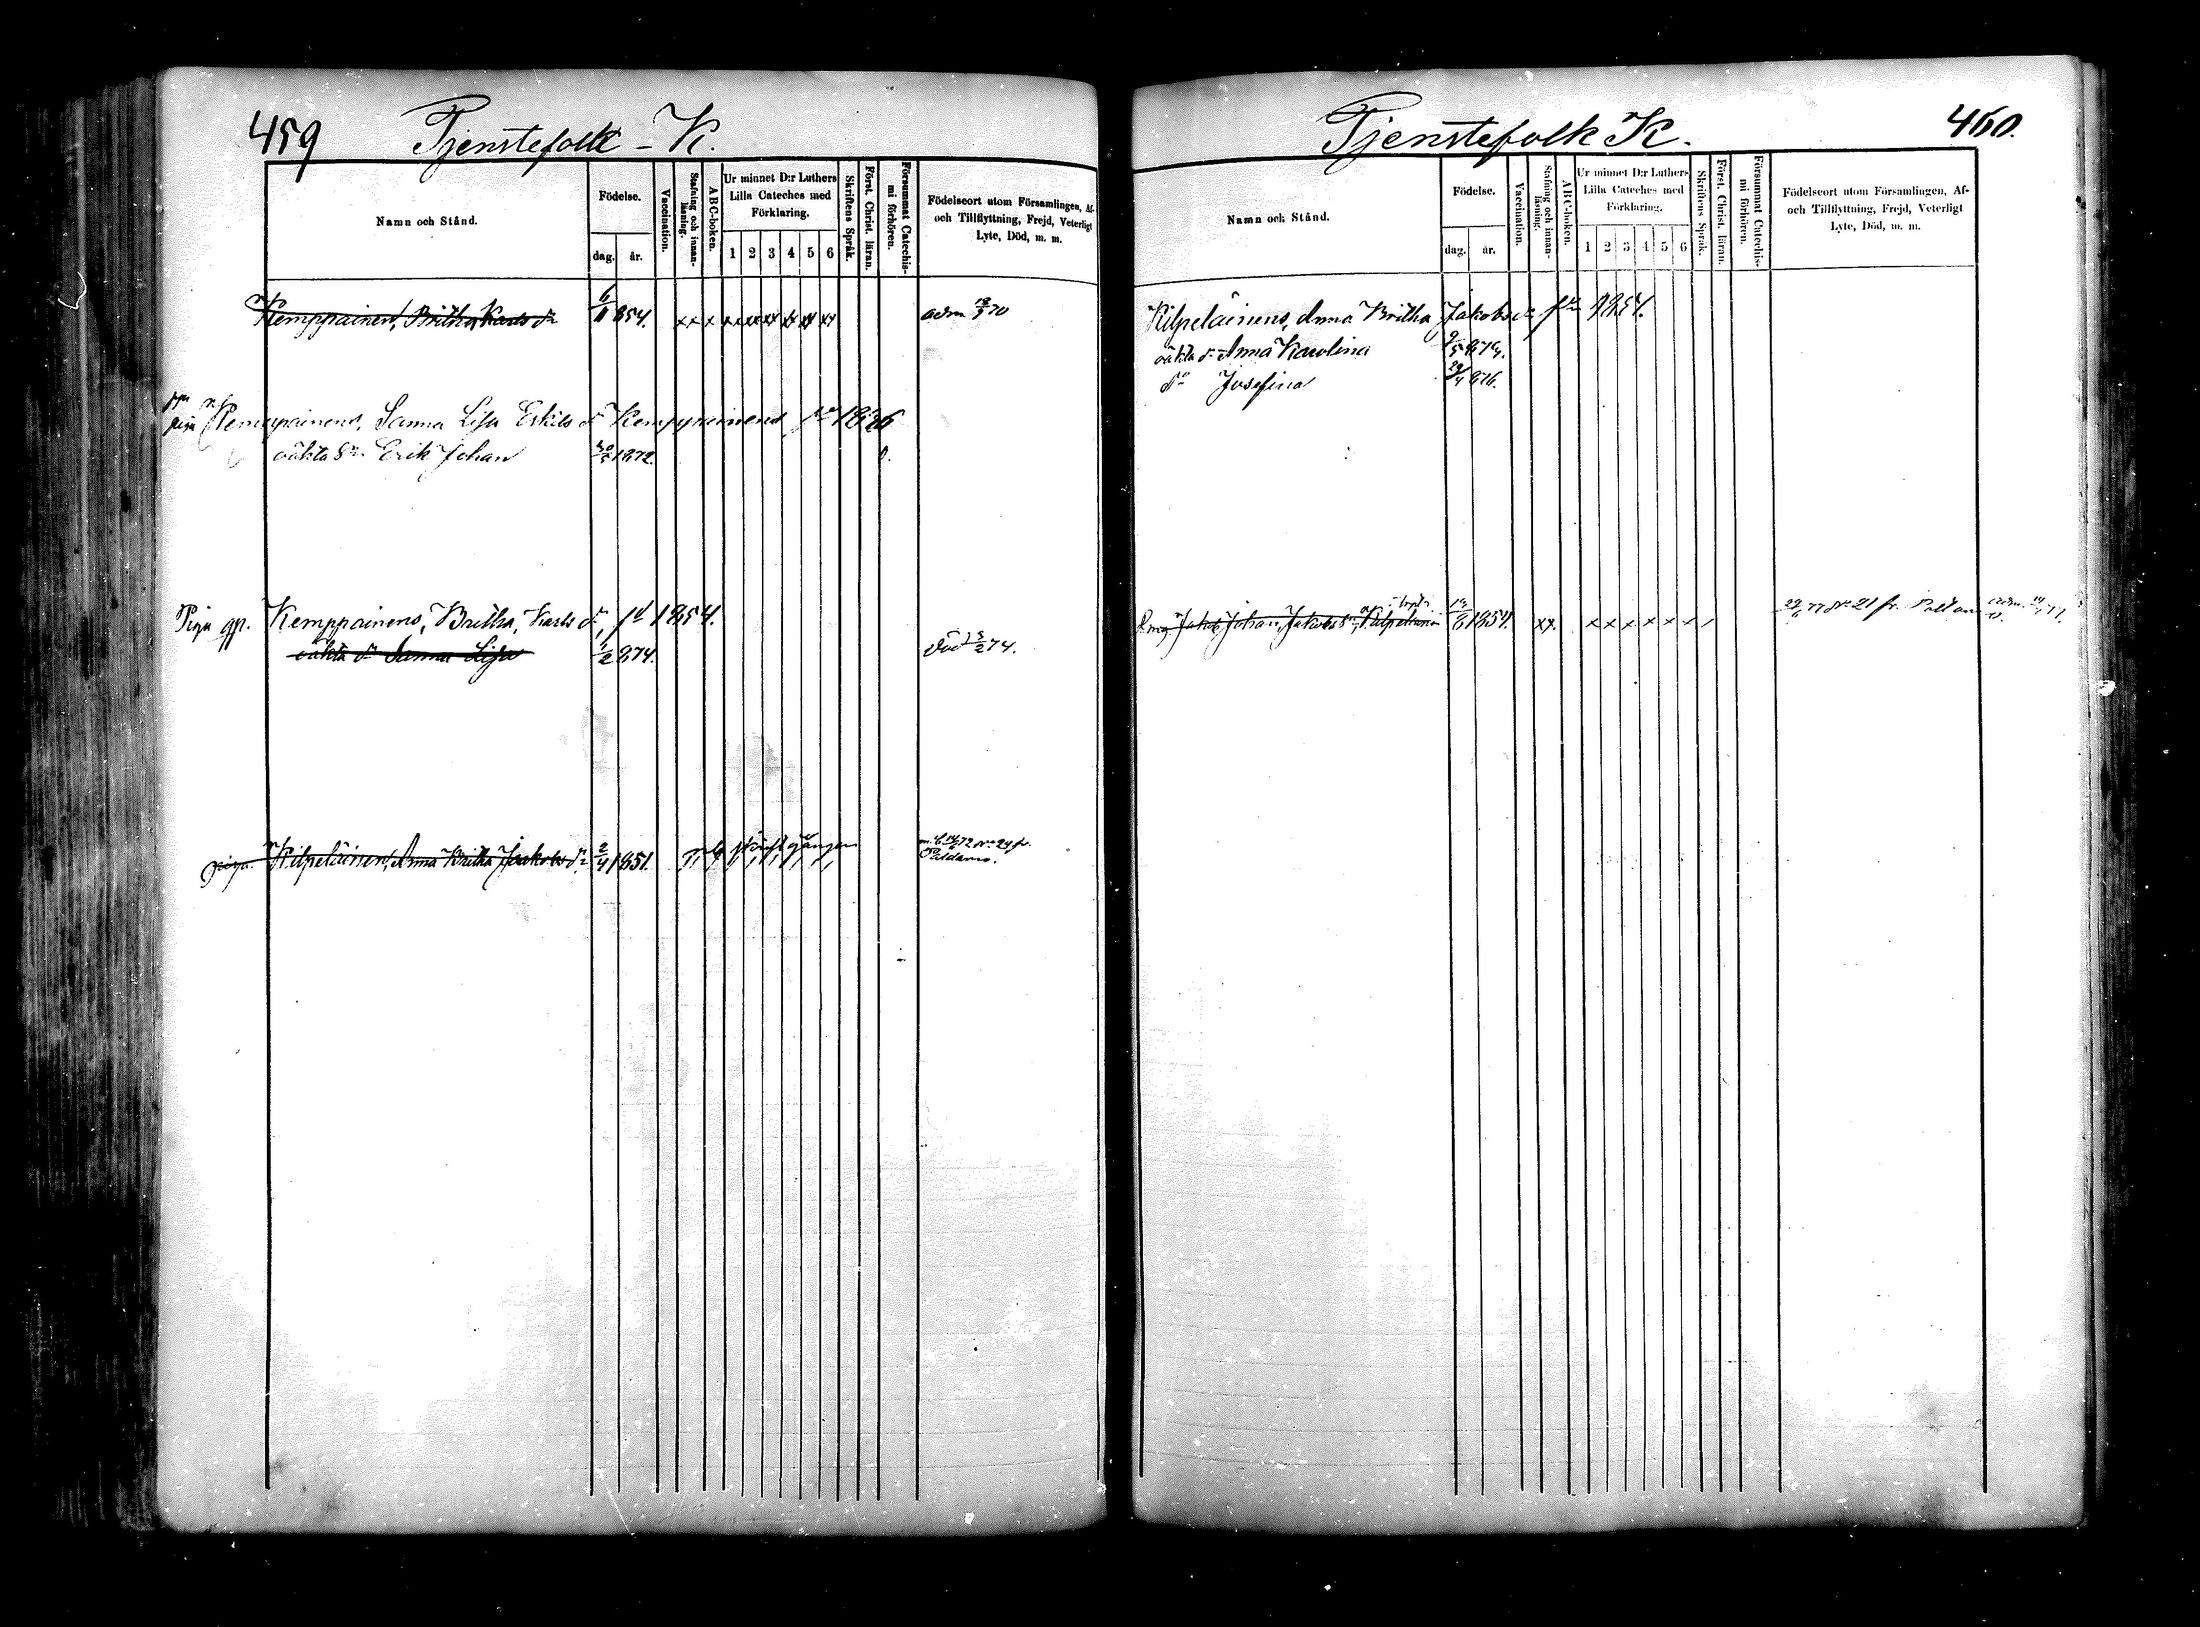 459 Tjenstefolk - K.
Namn och Stånd.
Födelse.
dag. år.
Vaccination.
Stafning och innan-
läsning.
ABC-boken.
Ur minnet D:r Luthers
Lilla Cateches med
Förklaring.
1 2 3 4 5 6
Skriftens Språk.
Först. Christ. läran.
Försummat Catechis-
mi förhören.
Födelseort utom Församlingen, Af-
och Tillflyttning, Frejd, Veterligt
Lyte, Död, m. m.
Kemppainen, Britha Karls dr 6/11 854. x x x x x xx xx xx xx xx adm 18/5 70
piga Kemppainens, Sanna Lisa Eskils dr Kemppainens, 1826
oäkta Sn Erik Johan 1872.
Piga gp. Kemppainens, Britha, Karls dr, fd 1854.
oäkta dr Sanna Lisa 1/2 874. död 74.
piga. Kilpeläinen, Anna Britha Jakobs dr 2/4 1851. skriftgången 72 No 24 fr.
Paldamo.
Tjenstefolk K. 460.
Namn och Stånd.
Födelse.
dag. år.
Vaccination.
Stafning och innan-
läsning.
ABC-boken.
Ur minnet D:r Luthers
Lilla Cateches med
Förklaring.
1 2 3 4 5 6
Skriftens Språk.
Först. Christ. läran.
Försummat Catechis-
mi förhören.
Födelseort utom Församlingen, Af-
och Tillflyttning, Frejd, Veterligt
Lyte, Död, m. m.
Kilpeläinens, Anna Britha Jakobs dr 1851.
oäkta dr Anna Karolina 9/5 874.
do Josefina 29/4 876.
Johan, Jakobs Sn, Kilpeläinen 1854. xx. x x x x x x 77 No 21 fr. Paldamo adm. 77.